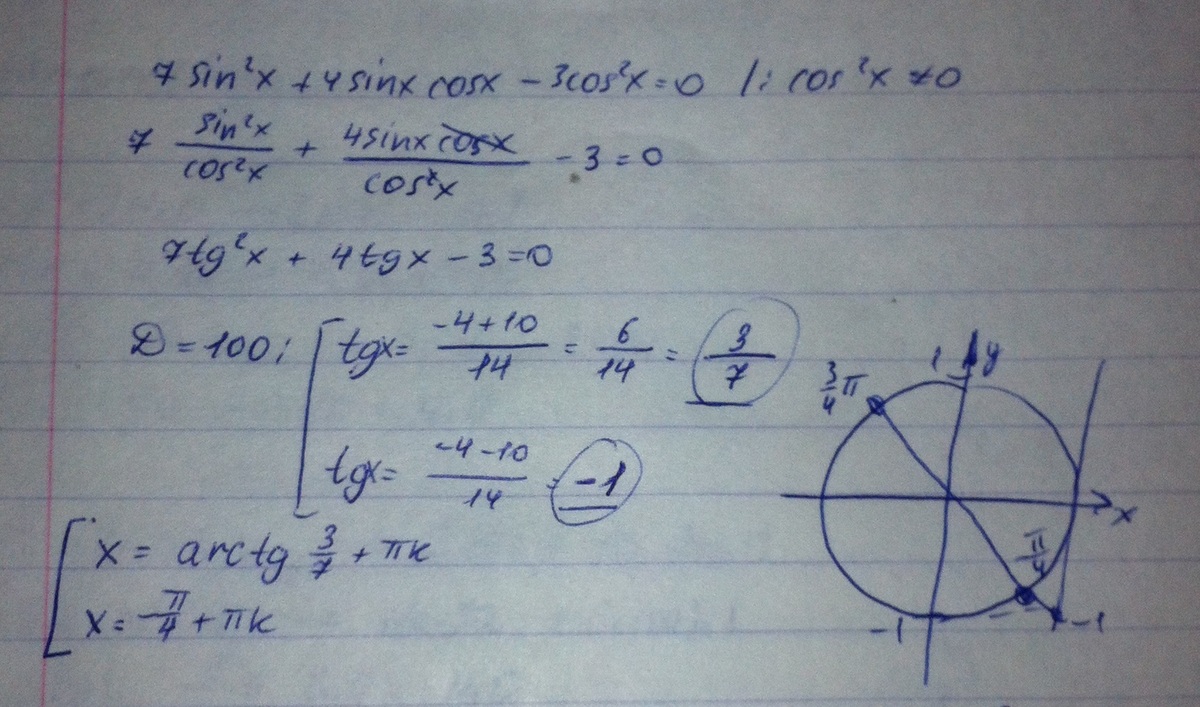 7 sin²x + 4 sinx cosx - 3cos²x = 0 |: cos²x ≠ 0
7 sin²x/cos²x + 4sinx cosx/cos²x - 3 = 0
7tg²x + 4tgx - 3 = 0
D = 100; [ tgx = (-4+10)/14 = 6/14 = 3/7
tgx = (-4-10)/14 = -1
[ x = arctg 3/7 + πk
x = -π/4 + πk
1 y
3/4 π
x
π/4
-1 -1